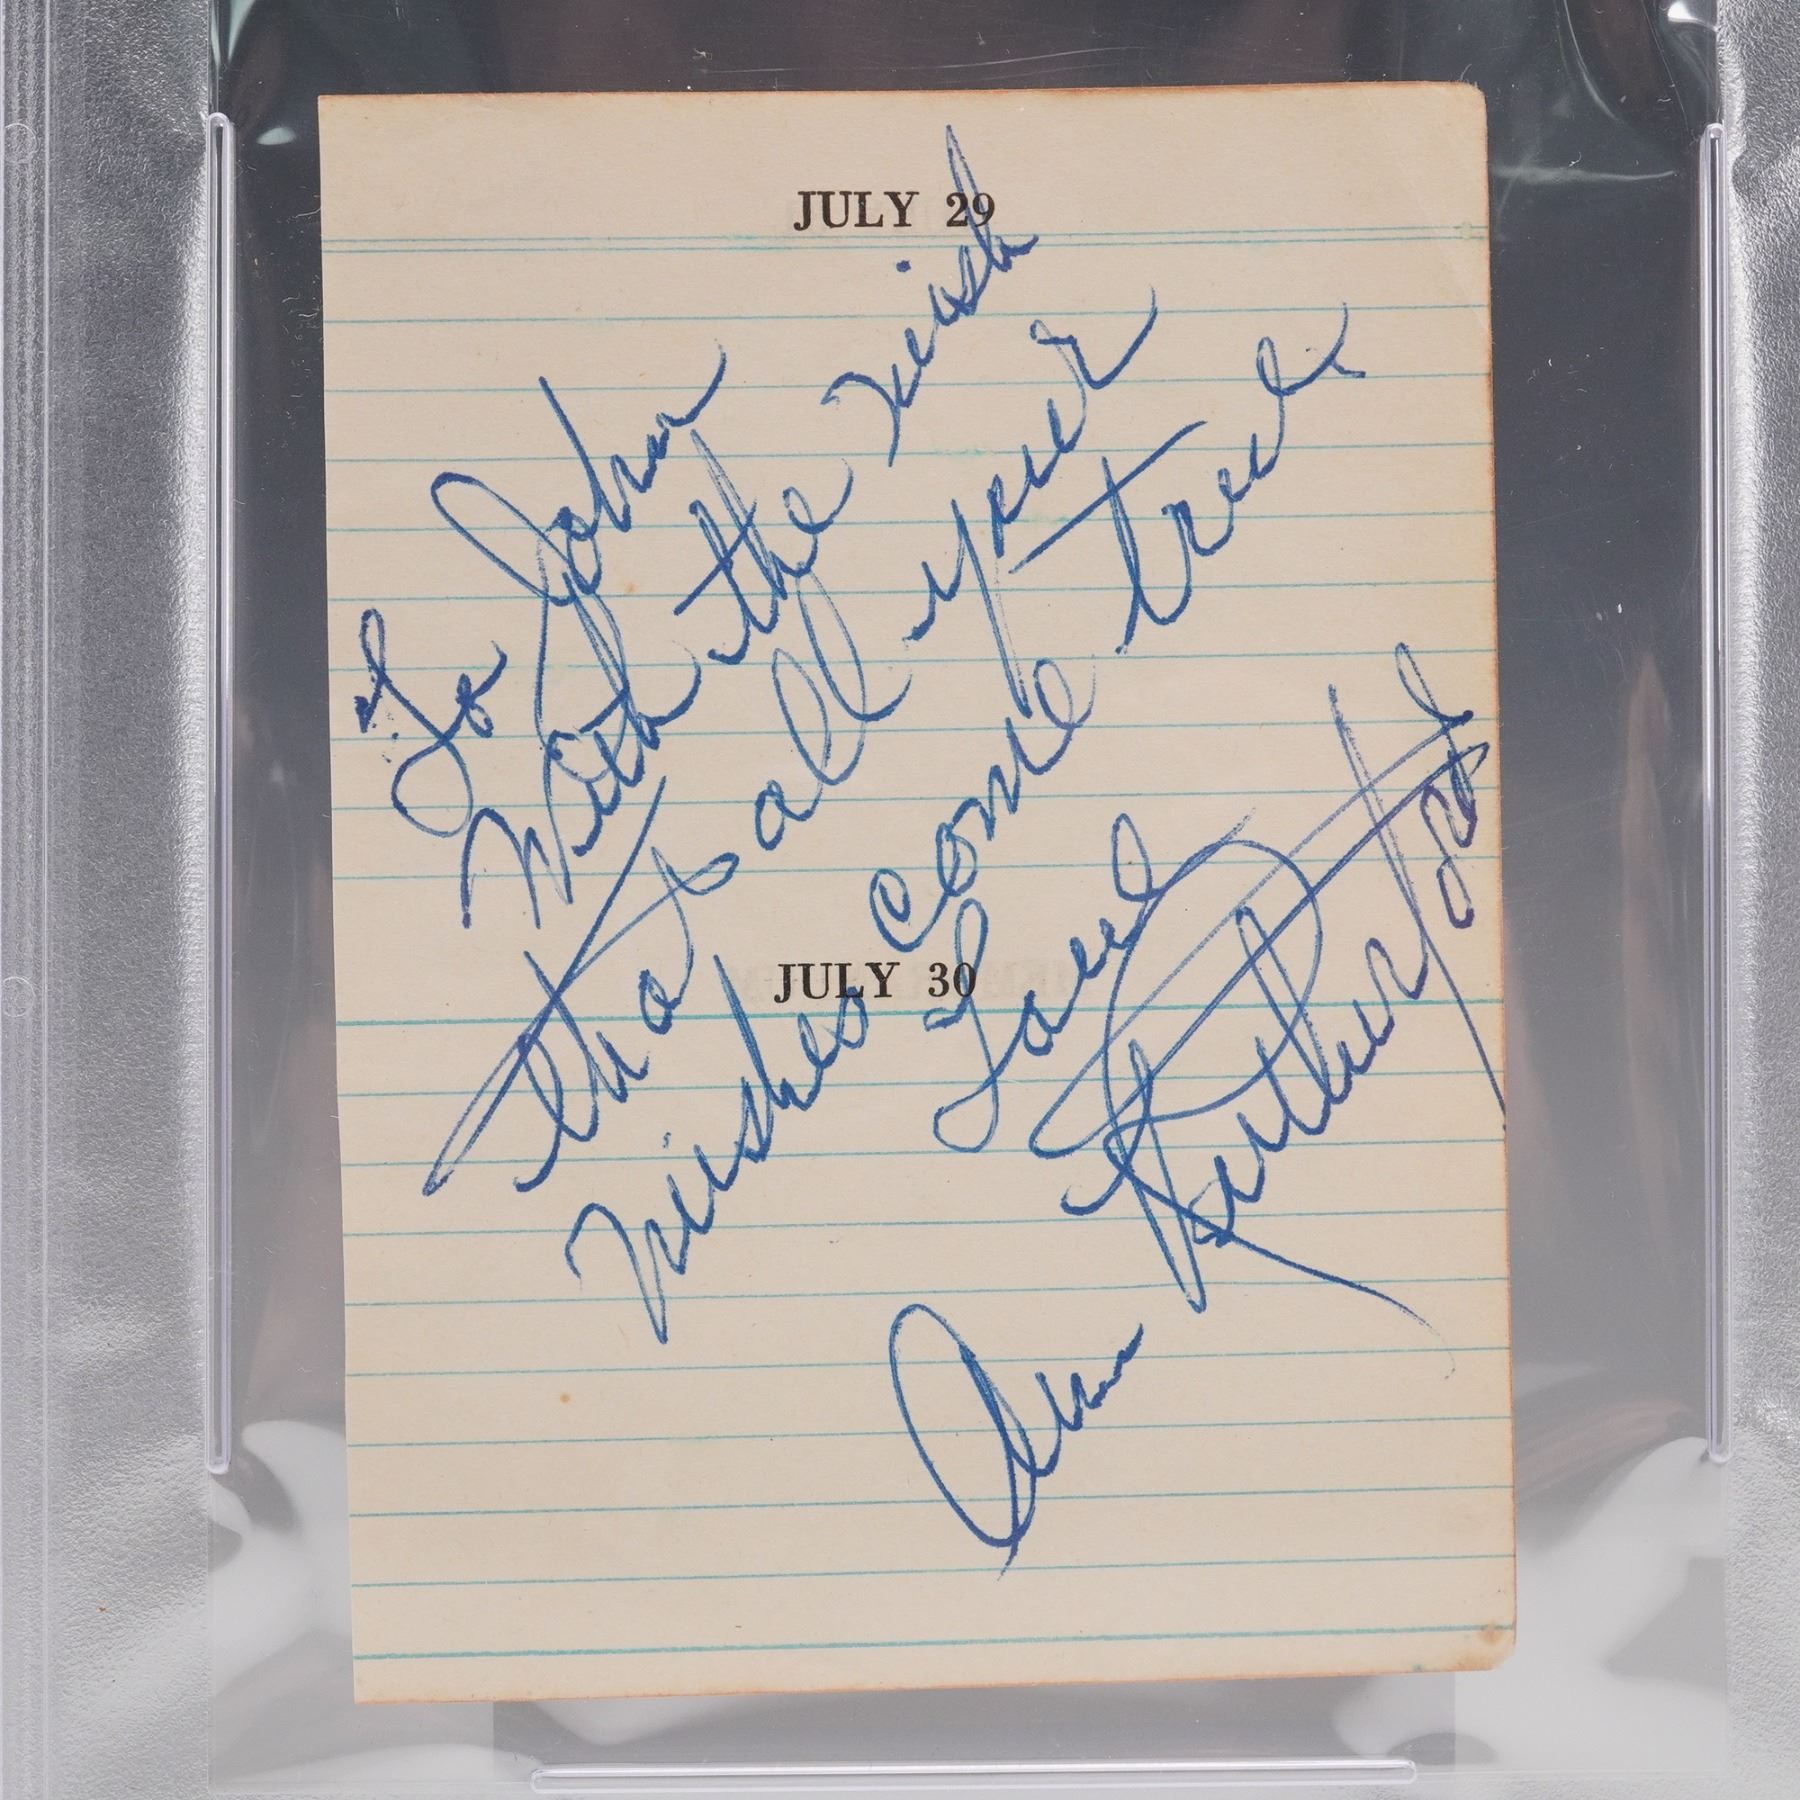 JULY 29
To John
With the wish
that all your
wishes come true.
Love
Ann Rutherford
JULY 30